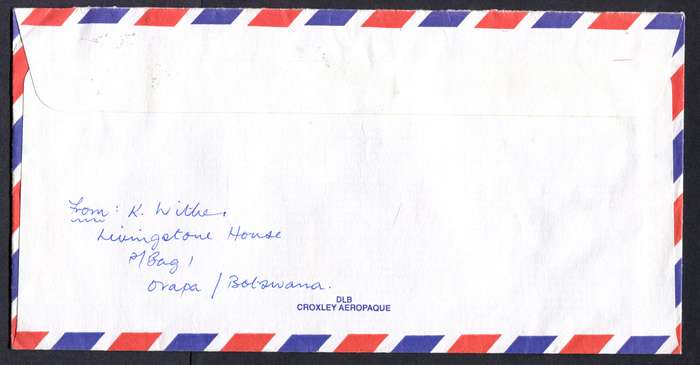 From: K. Withe,
Livingstone House
P/Bag 1
Orapa / Botswana.
DLB
CROXLEY AEROPAQUE